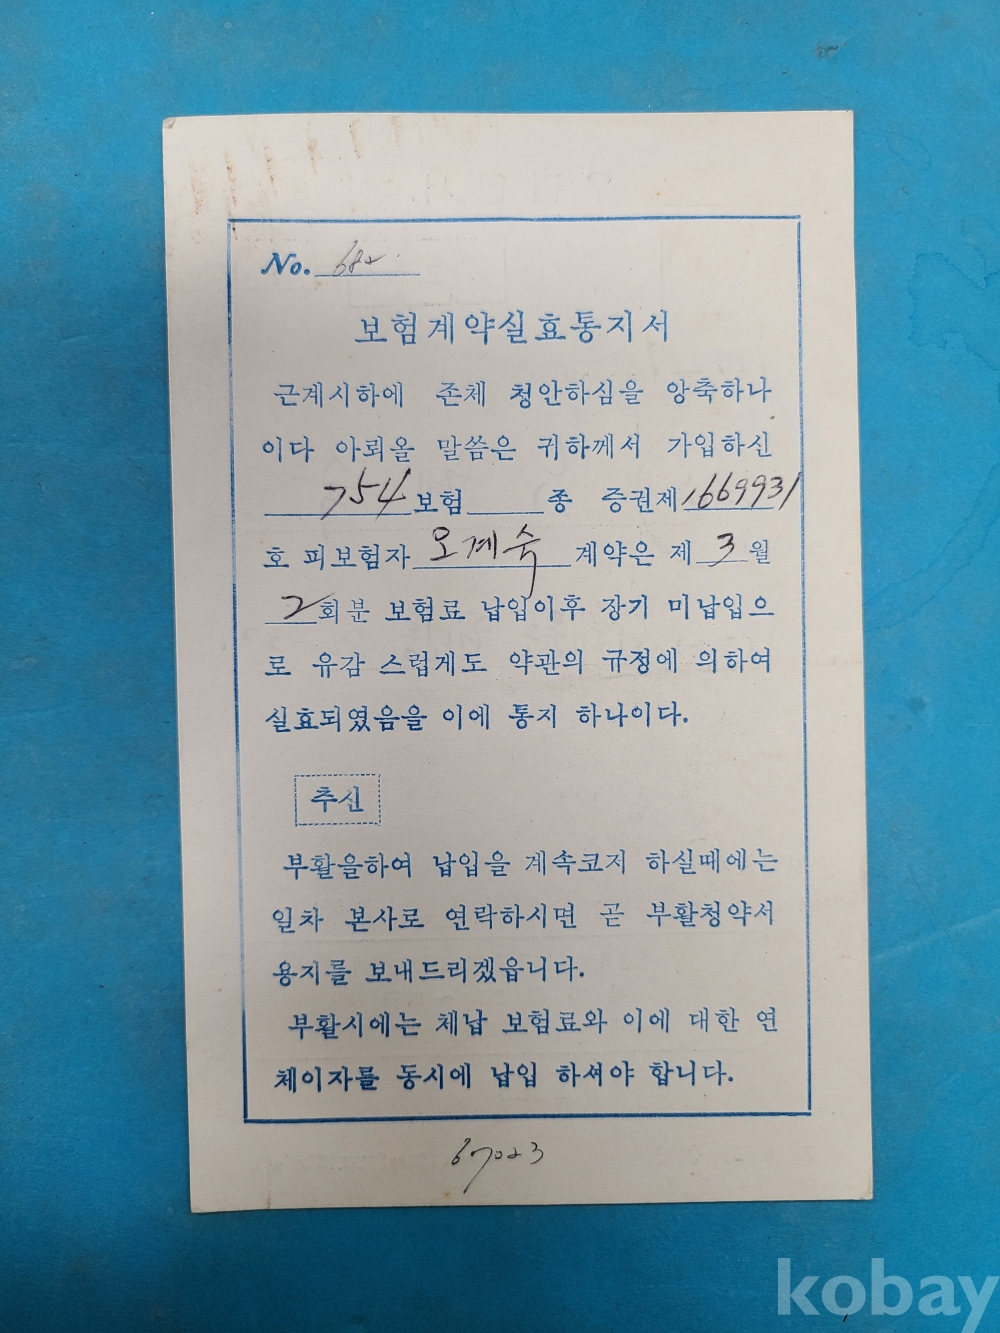 No. 682
보험계약실효통지서
근계시하에 존체 청안하심을 앙축하나
이다 아뢰올 말씀은 귀하께서 가입하신
754 보험 종 증권제 1669931
호 피보험자 오계숙 계약은 제 3 월
2 회분 보험료 납입이후 장기 미납입으
로 유감 스럽게도 약관의 규정에 의하여
실효되였음을 이에 통지 하나이다.
추신
부활을하여 납입을 계속코지 하실때에는
일차 본사로 연락하시면 곧 부활청약서
용지를 보내드리겠읍니다.
부활시에는 체납 보험료와 이에 대한 연
체이자를 동시에 납입 하셔야 합니다.
67023
kobay